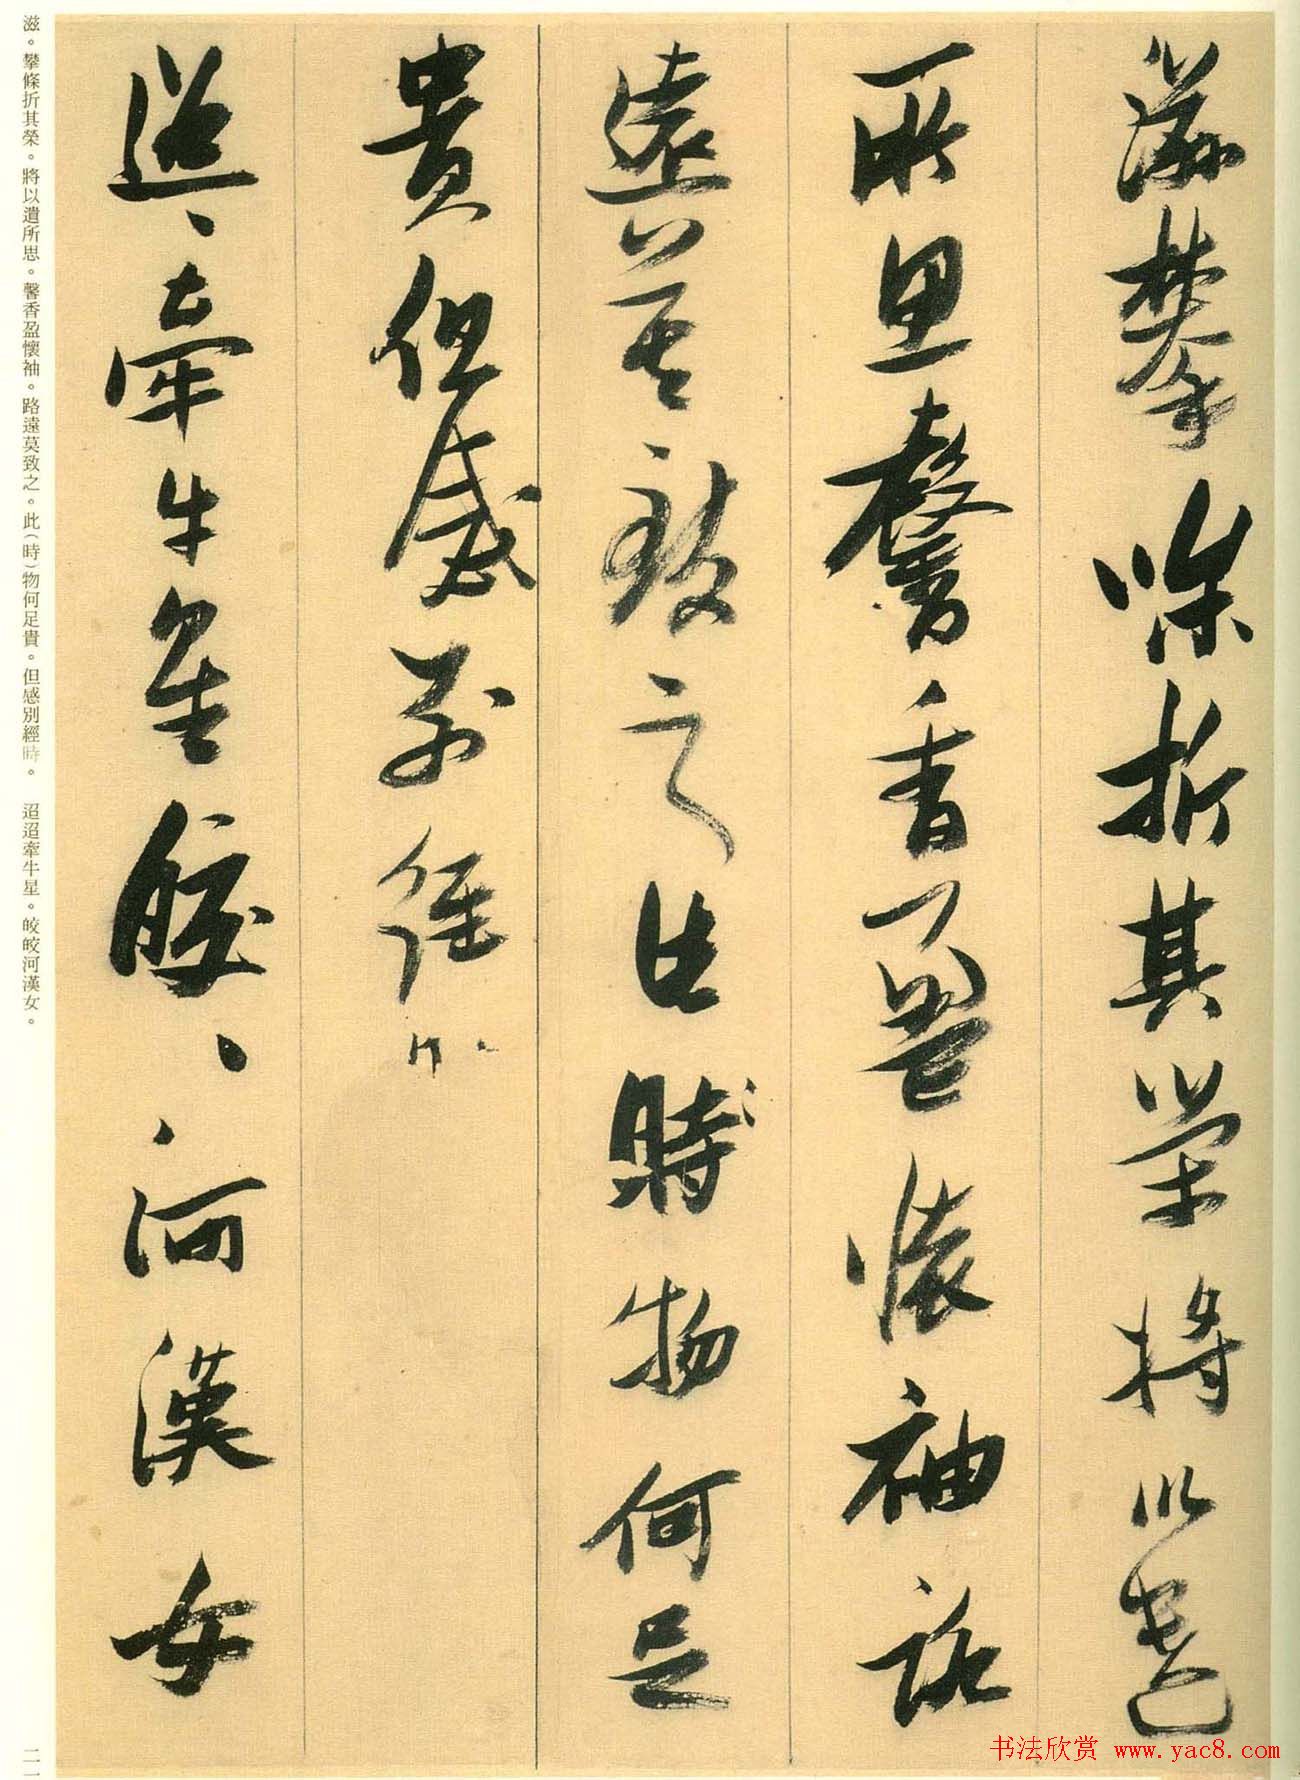 滋攀條折其榮將以遺
所思馨香盈懷袖路
遠莫致之此時物何足
貴但感別經時
迢〻牽牛星皎〻河漢女
滋。攀條折其榮。將以遺所思。馨香盈懷袖。路遠莫致之。此(時)物何足貴。但感別經時。　迢迢牽牛星。皎皎河漢女。
二一
书法欣赏 www.yac8.com